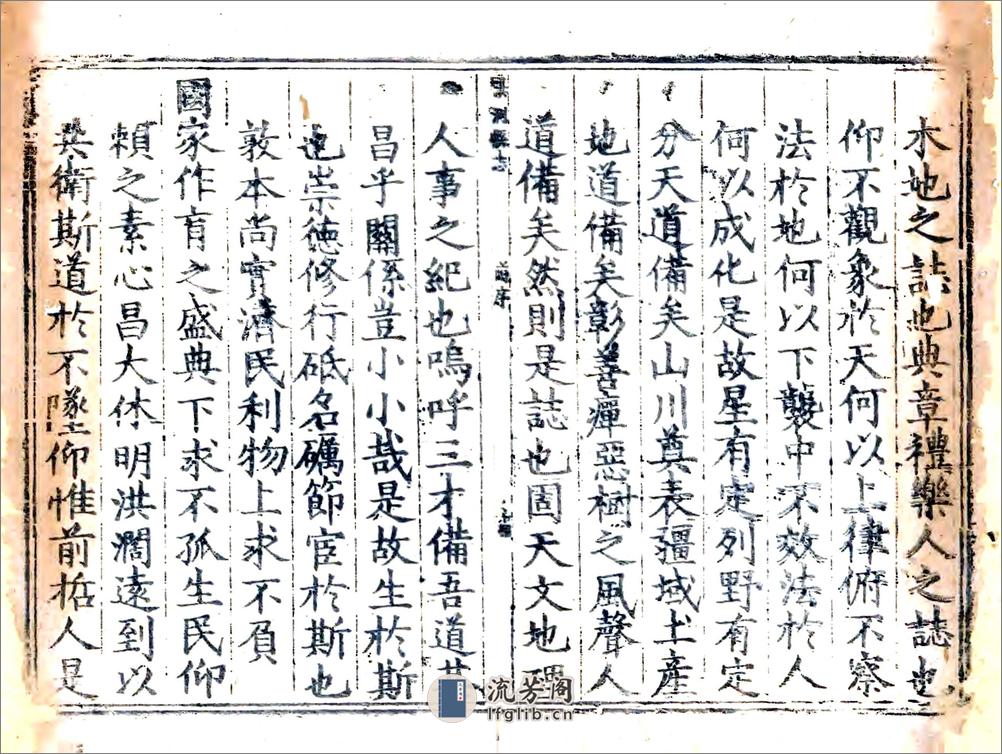 水地之誌也典章禮樂人之誌也
仰不觀象於天何以上律俯不察
法於地何以下襲中不效法於人
何以成化是故星有定列野有定
分天道備矣山川奠表疆域土產
地道備矣彰善癉惡樹之風聲人
道備矣然則是誌也固天文地理
人事之紀也嗚呼三才備吾道其
昌乎關係豈小小哉是故生於斯
也崇德修行砥名礪節宦於斯也
敦本尚實濟民利物上求不負
國家作育之盛典下求不孤生民仰
賴之素心昌大休明洪濶遠到以
共衛斯道於不墜仰惟前哲人是
流芳阁
lfglib.cn